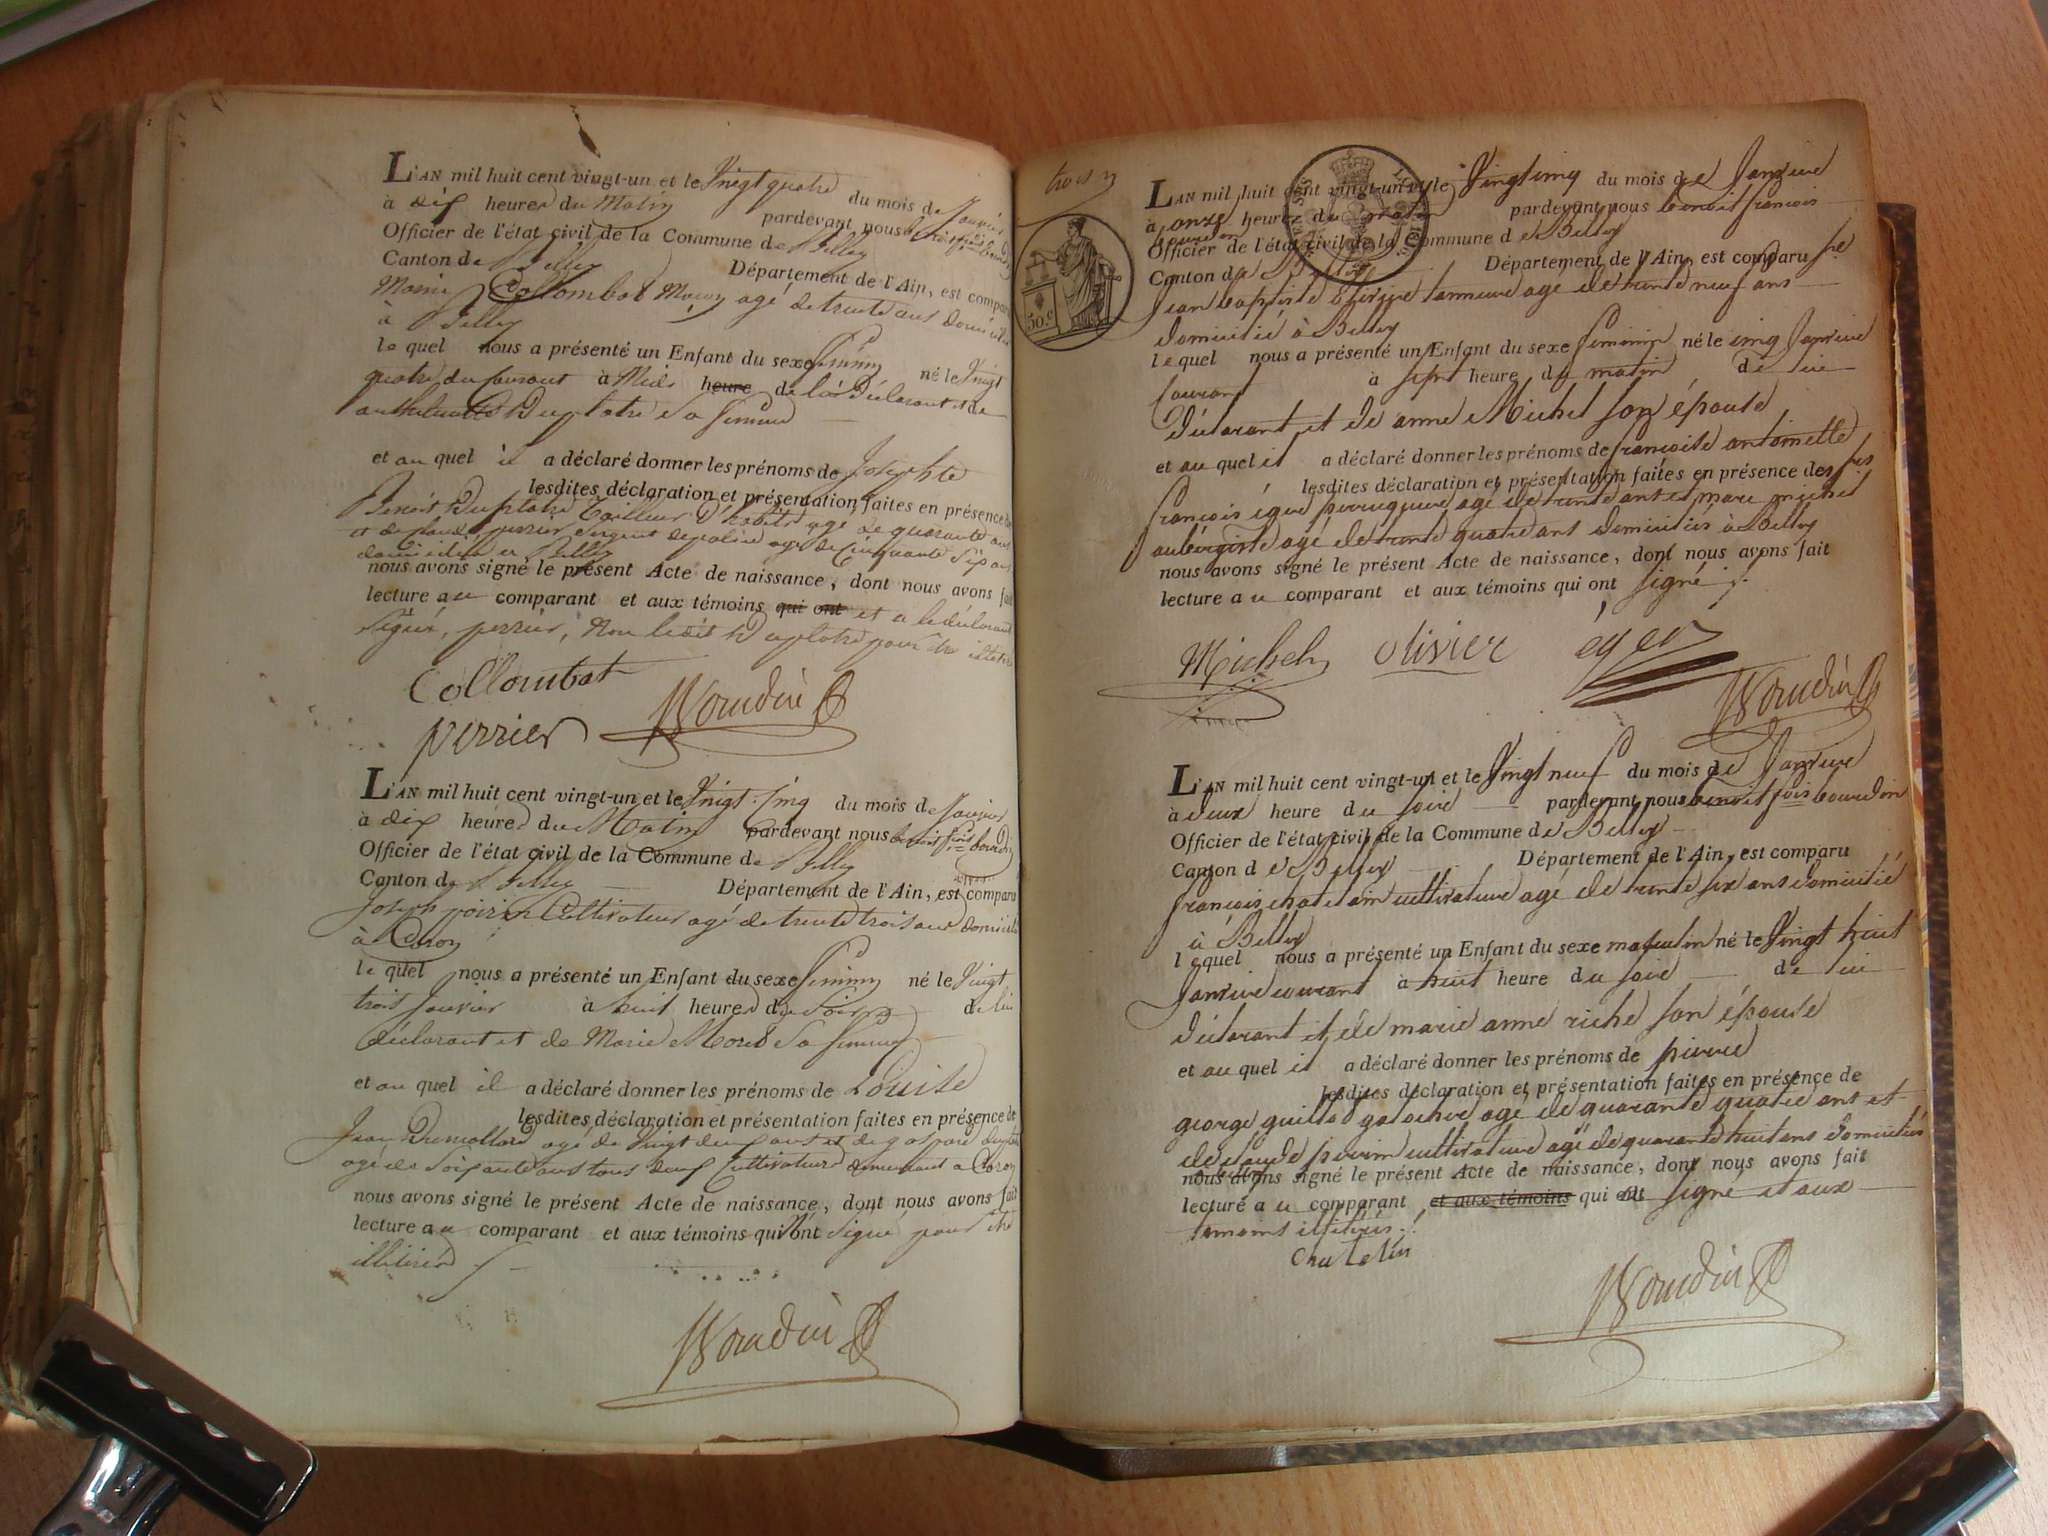 L'AN mil huit cent vingt-un et le Vingt quatre du mois de Janvier
à dix heures du Matin pardevant nous
Officier de l'état civil de la Commune de Belley
Canton de Belley Département de l'Ain, est comparu
Collombat Maçon agé de trente ans domicilié
à Belley
lequel nous a présenté un Enfant du sexe féminin né le Vingt
quatre du Courant à Midi heure de lui Déclarant et de
Duplatre Sa femme
et au quel il a déclaré donner les prénoms de Josephte
lesdites déclaration et présentation faites en présence de
Benoit Duplatre Tailleur D'habits agé de quarante ans
et de Claude perrier Sergent de police agé de Cinquante Six ans
domiciliés à Belley
nous avons signé le présent Acte de naissance, dont nous avons fait
lecture au comparant et aux témoins qui ont et a le déclarant
Signé, perrier, Non ledit Duplatre pour être illitéré
Collombat
perrier Bourdin
L'AN mil huit cent vingt-un et le Vingt Cinq du mois de Janvier
à dix heures du Matin pardevant nous benoit fois bourdin
Officier de l'état civil de la Commune de Belley
Canton de Belley Département de l'Ain, est comparu
Joseph poirin Cultivateur agé de trente trois ans domicilié
à Coron
lequel nous a présenté un Enfant du sexe féminin né le Vingt
trois Janvier à huit heures du Soir de lui
déclarant et de Marie Morel Sa femme
et au quel il a déclaré donner les prénoms de Louise
lesdites déclaration et présentation faites en présence de
Jean Dumollard agé de Vingt deux ans et de gaspard
agé de Soixante ans tous deux Cultivateurs demeurant à Coron
nous avons signé le présent Acte de naissance, dont nous avons fait
lecture au comparant et aux témoins qui n'ont Signé pour être
illitérés
Bourdin
trois
50.c
L'AN mil huit cent vingt-un et le Vingt cinq du mois de Janvier
à onze heures du matin pardevant nous benoit francois
bourdin
Officier de l'état civil de la Commune de Belley
Canton de Belley Département de l'Ain, est comparu Sr
Jean baptiste Olivier tanneur agé de trente neuf ans
domicilié à Belley
lequel nous a présenté un Enfant du sexe féminin né le cinq Janvier
Courant à sept heure du matin de lui
déclarant et de anne Michel son épouse
et au quel il a déclaré donner les prénoms de françoise antoinette
lesdites déclaration et présentation faites en présence des srs
françois eger perruquier agé de trente ans et marc michel
aubergiste agé de trente quatre ans domiciliés à Belley
nous avons signé le présent Acte de naissance, dont nous avons fait
lecture au comparant et aux témoins qui ont signé
Michel Olivier eger
Bourdin
L'AN mil huit cent vingt-un et le Vingt neuf du mois de Janvier
à deux heure du soir pardevant nous benoit fois bourdin
Officier de l'état civil de la Commune de Belley
Canton de Belley Département de l'Ain, est comparu
françois chatelain cultivateur agé de trente six ans domicilié
à Belley
lequel nous a présenté un Enfant du sexe masculin né le Vingt huit
Janvier courant à huit heure du soir de lui
déclarant et de marie anne riche son épouse
et au quel il a déclaré donner les prénoms de pierre
lesdites déclaration et présentation faites en présence de
george guillod agé de quarante quatre ans et
de claude cultivateur agé de quarante huit ans domiciliés
à Belley
nous avons signé le présent Acte de naissance, dont nous avons fait
lecture au comparant et aux témoins qui ont signé et aux
témoins illitérés
Chatelin
Bourdin